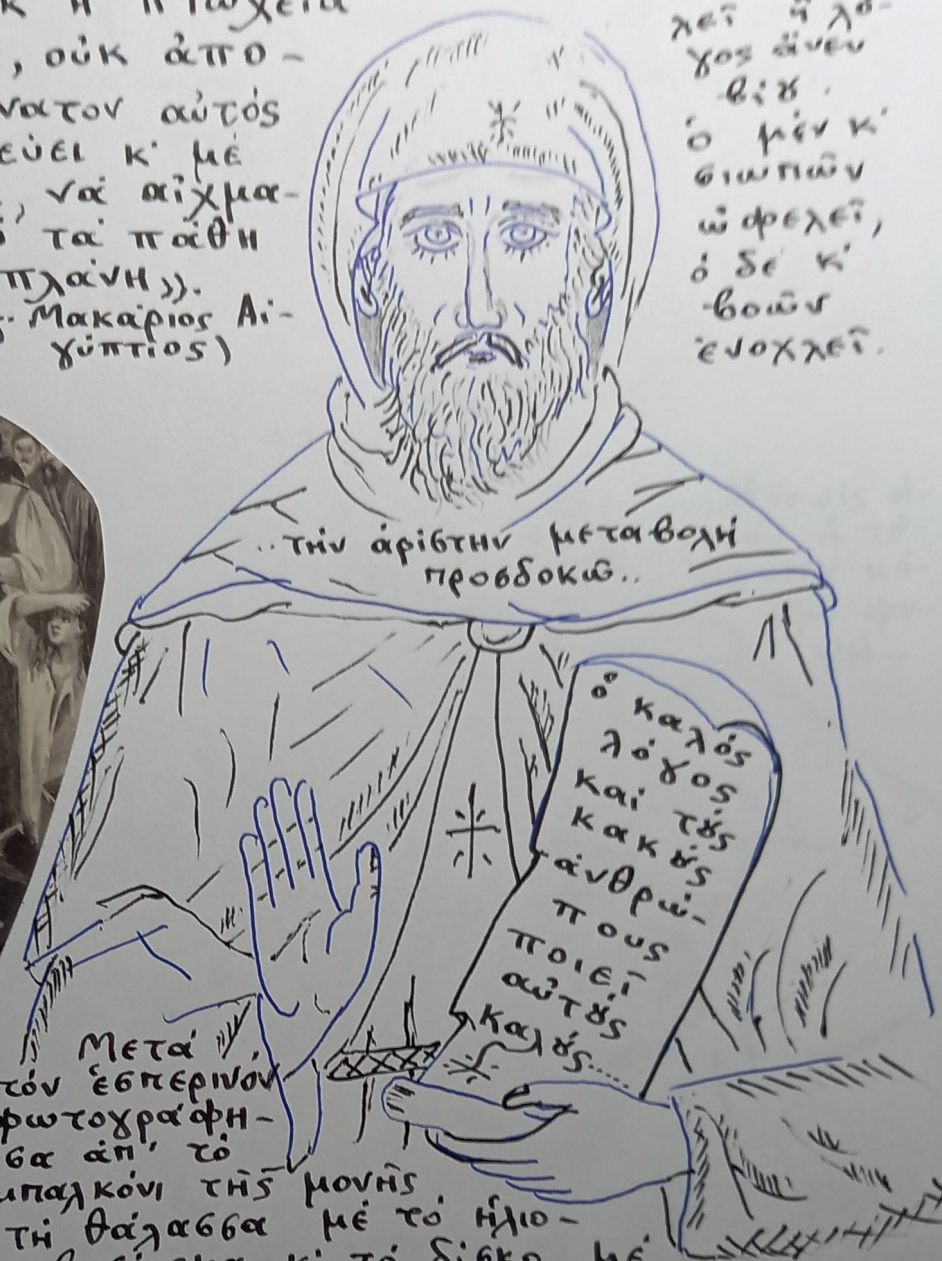 ἡ πτωχεία
, οὐκ ἀπο-
νατον αὐτός
εύει κ' μέ
, νά αἰχμα-
τά πάθη
πλάνη».
Μακάριος Αἰ-
γύπτιος)
λεῖ ἤ λό-
γος ἄνευ
βίȣ.
ὁ μέν κ'
σιωπῶν
ὠφελεῖ,
ὁ δέ κ'
βοῶν
ἐνοχλεῖ.
..τήν ἀρίστην μεταβολή
προσδοκῶ..
ὁ καλός
λόγος
καί τȣ́ς
κακȣ́ς
ἀνθρώ-
πους
ποιεῖ
αὐτȣ́ς
καλȣ́ς.....
Μετά
τόν ἑσπερινόν
φωτογράφη-
σα ἀπ' τό
μπαλκόνι τῆς μονῆς
τή θάλασσα μέ τό ἡλιο-
κ' τό δίσκο μέ